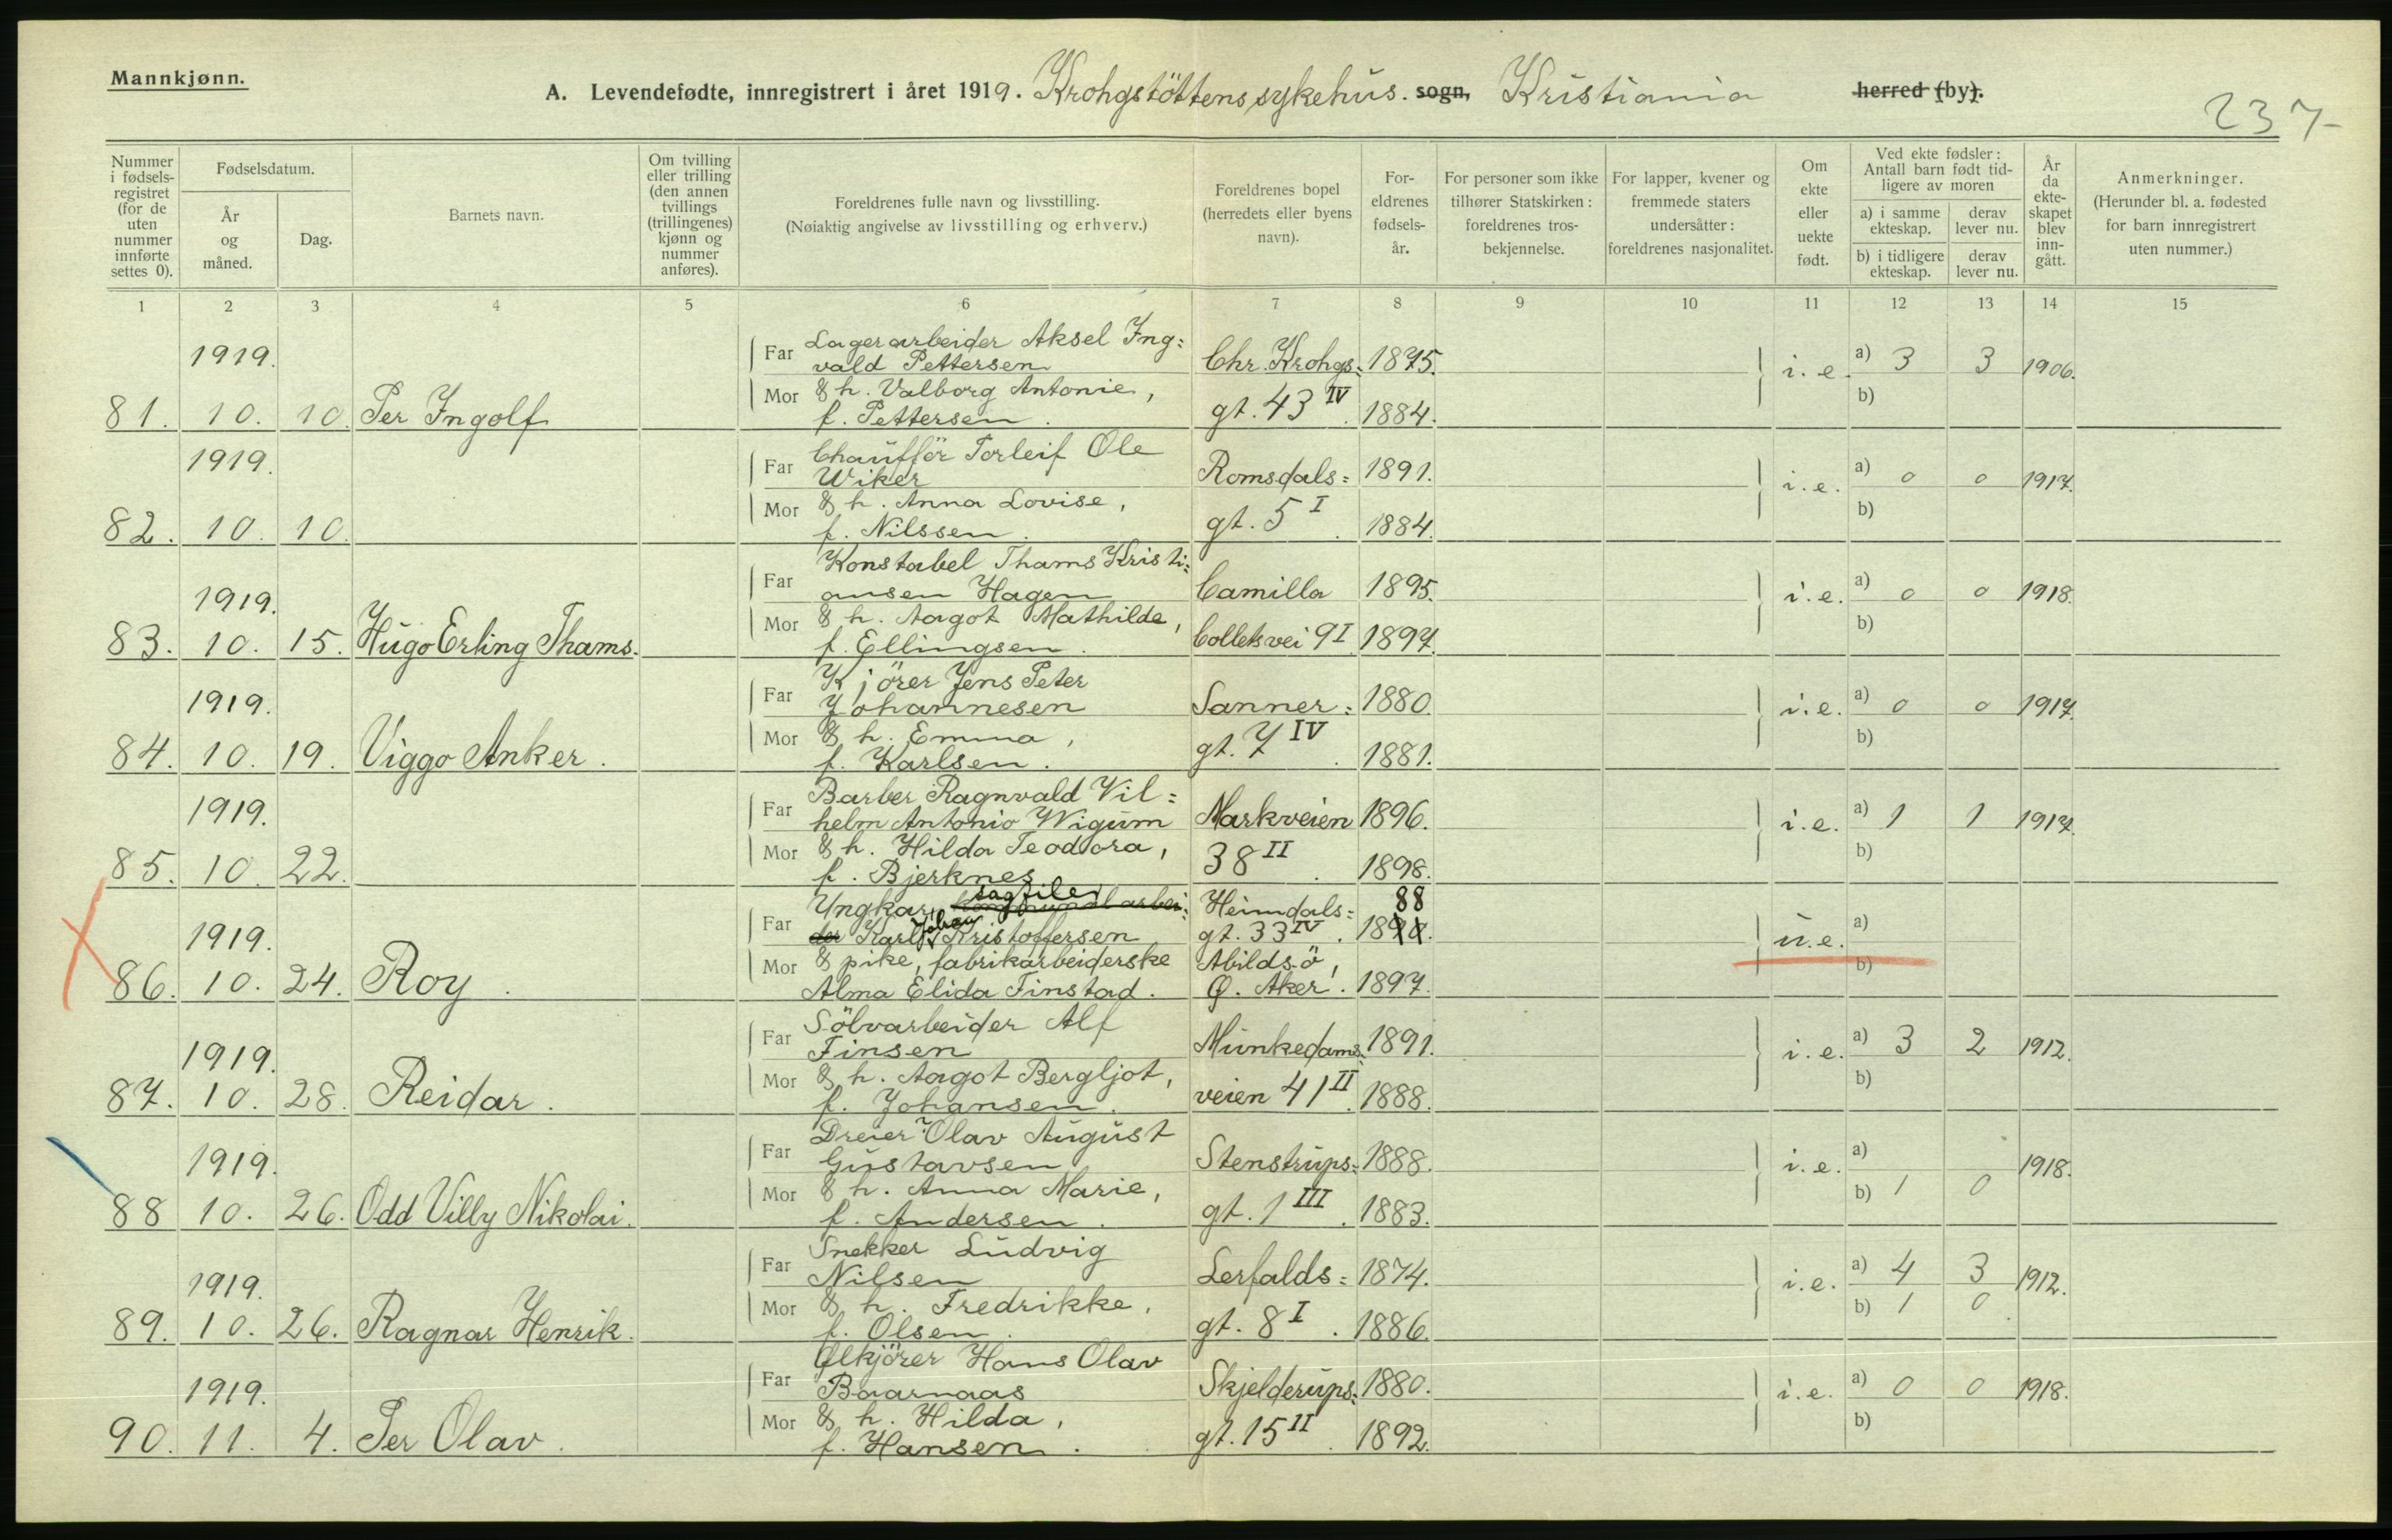 Mannkjønn.
A. Levendefødte, innregistrert i året 1919. Krohgstöttens sykehus. sogn, Kristiania herred (by).
237
Nummer i fødsels-registret (for de uten nummer innførte settes 0).
Fødselsdatum.
År og måned.
Dag.
Barnets navn.
Om tvilling eller trilling (den annen tvillings (trillingenes) kjønn og nummer anføres).
Foreldrenes fulle navn og livsstilling.
(Nøiaktig angivelse av livsstilling og erhverv.)
Foreldrenes bopel (herredets eller byens navn).
For-eldrenes fødsels-år.
For personer som ikke tilhører Statskirken: foreldrenes tros-bekjennelse.
For lapper, kvener og fremmede staters undersåtter: foreldrenes nasjonalitet.
Om ekte eller uekte født.
Ved ekte fødsler: Antall barn født tid-ligere av moren
a) i samme ekteskap.
derav lever nu.
b) i tidligere ekteskap.
derav lever nu.
År da ekte-skapet blev inn-gått.
Anmerkninger.
(Herunder bl. a. fødested for barn innregistrert uten nummer.)
1 2 3 4 5 6 7 8 9 10 11 12 13 14 15
1919. Far Lagerarbeider Aksel Ing=
vald Pettersen Chr. Krohgs= 1875. i. e. a) 3 3 1906.
Mor & h. Valborg Antonie, b)
81. 10. 10. Per Ingolf f. Pettersen. gt. 43 IV. 1884.
1919. Far Chaufför Torleif Ole
Wiker Romsdals= 1891. i. e. a) 0 0 1917.
Mor & h. Anna Lovise, b)
82. 10. 10. f. Nilssen. gt. 5 I. 1884.
1919. Far Konstabel Thams Kristi=
ansen Hagen Camilla 1895. i. e. a) 0 0 1918.
Mor & h. Aagot Mathilde, b)
83. 10. 15. Hugo Erling Thams. f. Ellingsen. Colletsvei 9 I 1897.
1919. Far Kjörer Jens Peter
Johannesen Sanner= 1880. i. e. a) 0 0 1917.
Mor & h. Emma, b)
84. 10. 19. Viggo Anker. f. Karlsen. gt. 7 IV. 1881.
1919. Far Barber Ragnvald Vil=
helm Antonio Wigum Markveien 1896. i. e. a) 1 1 1917.
Mor & h. Hilda Teodora, b)
85. 10. 22. f. Bjerknes 38 II. 1898.
1919. Far Ungkar, sagfiler arbei= Heimdals= 88
der Karl Johan Kristoffersen gt. 33 IV. 1890. u. e. a)
Mor & pike, fabrikarbeiderske Abildsö, b)
86. 10. 24. Roy. Alma Elida Finstad. Ø. Aker. 1897.
1919. Far Sölvarbeider Alf
Finsen Munkedams= 1891. i. e. a) 3 2 1912.
Mor & h. Aagot Bergljot, b)
87. 10. 28. Reidar. f. Johansen. veien 41 II. 1888.
1919. Far Dreier Olav August
Gustavsen Stenstrups= 1888. i. e. a) 1918.
Mor & h. Anna Marie, b) 1 0
88 10. 26. Odd Villy Nikolai. f. Andersen. gt. 1 III. 1883.
1919. Far Snekker Ludvig
Nilsen Lerfalds= 1874. i. e. a) 4 3 1912.
Mor & h. Fredrikke, b) 1 0
89. 10. 26. Ragnar Henrik. f. Olsen. gt. 8 I. 1886.
1919. Far Ølkjörer Hans Olav
Baarnaas Skjelderups= 1880. i. e. a) 0 0 1918.
Mor & h. Hilda, b)
90. 11. 4. Per Olav. f. Hansen. gt. 15 II. 1892.